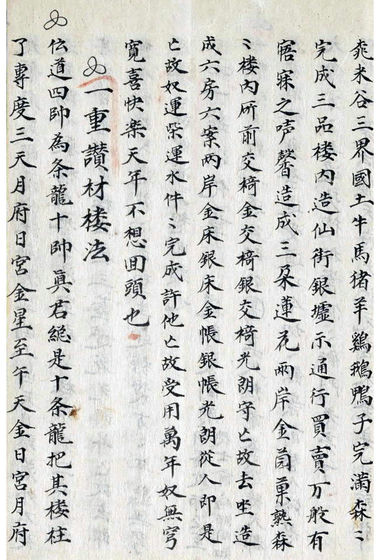 粜米谷三界國土牛馬猪羊鷄鵝鴨子完滿森〻
完成三品楼内造仙街銀墟示通行買賣万般有
寤寐之声馨造成三朶蓮花兩岸金园菓熟森
〻楼内所前交椅金交椅銀交椅光朗守亡故去坐造
成六房六案兩岸金床銀床金帳銀帳光朗從入即是
亡故奴運柴運水件〻完成許他亡故受用萬年奴無穹
寬喜快樂天年不想囬頭也
一重讚材楼法
伝道四帥為条龍十帥眞君絕是十条龍把其楼柱
了專度三天月府日宮金星至午天金日宮月府